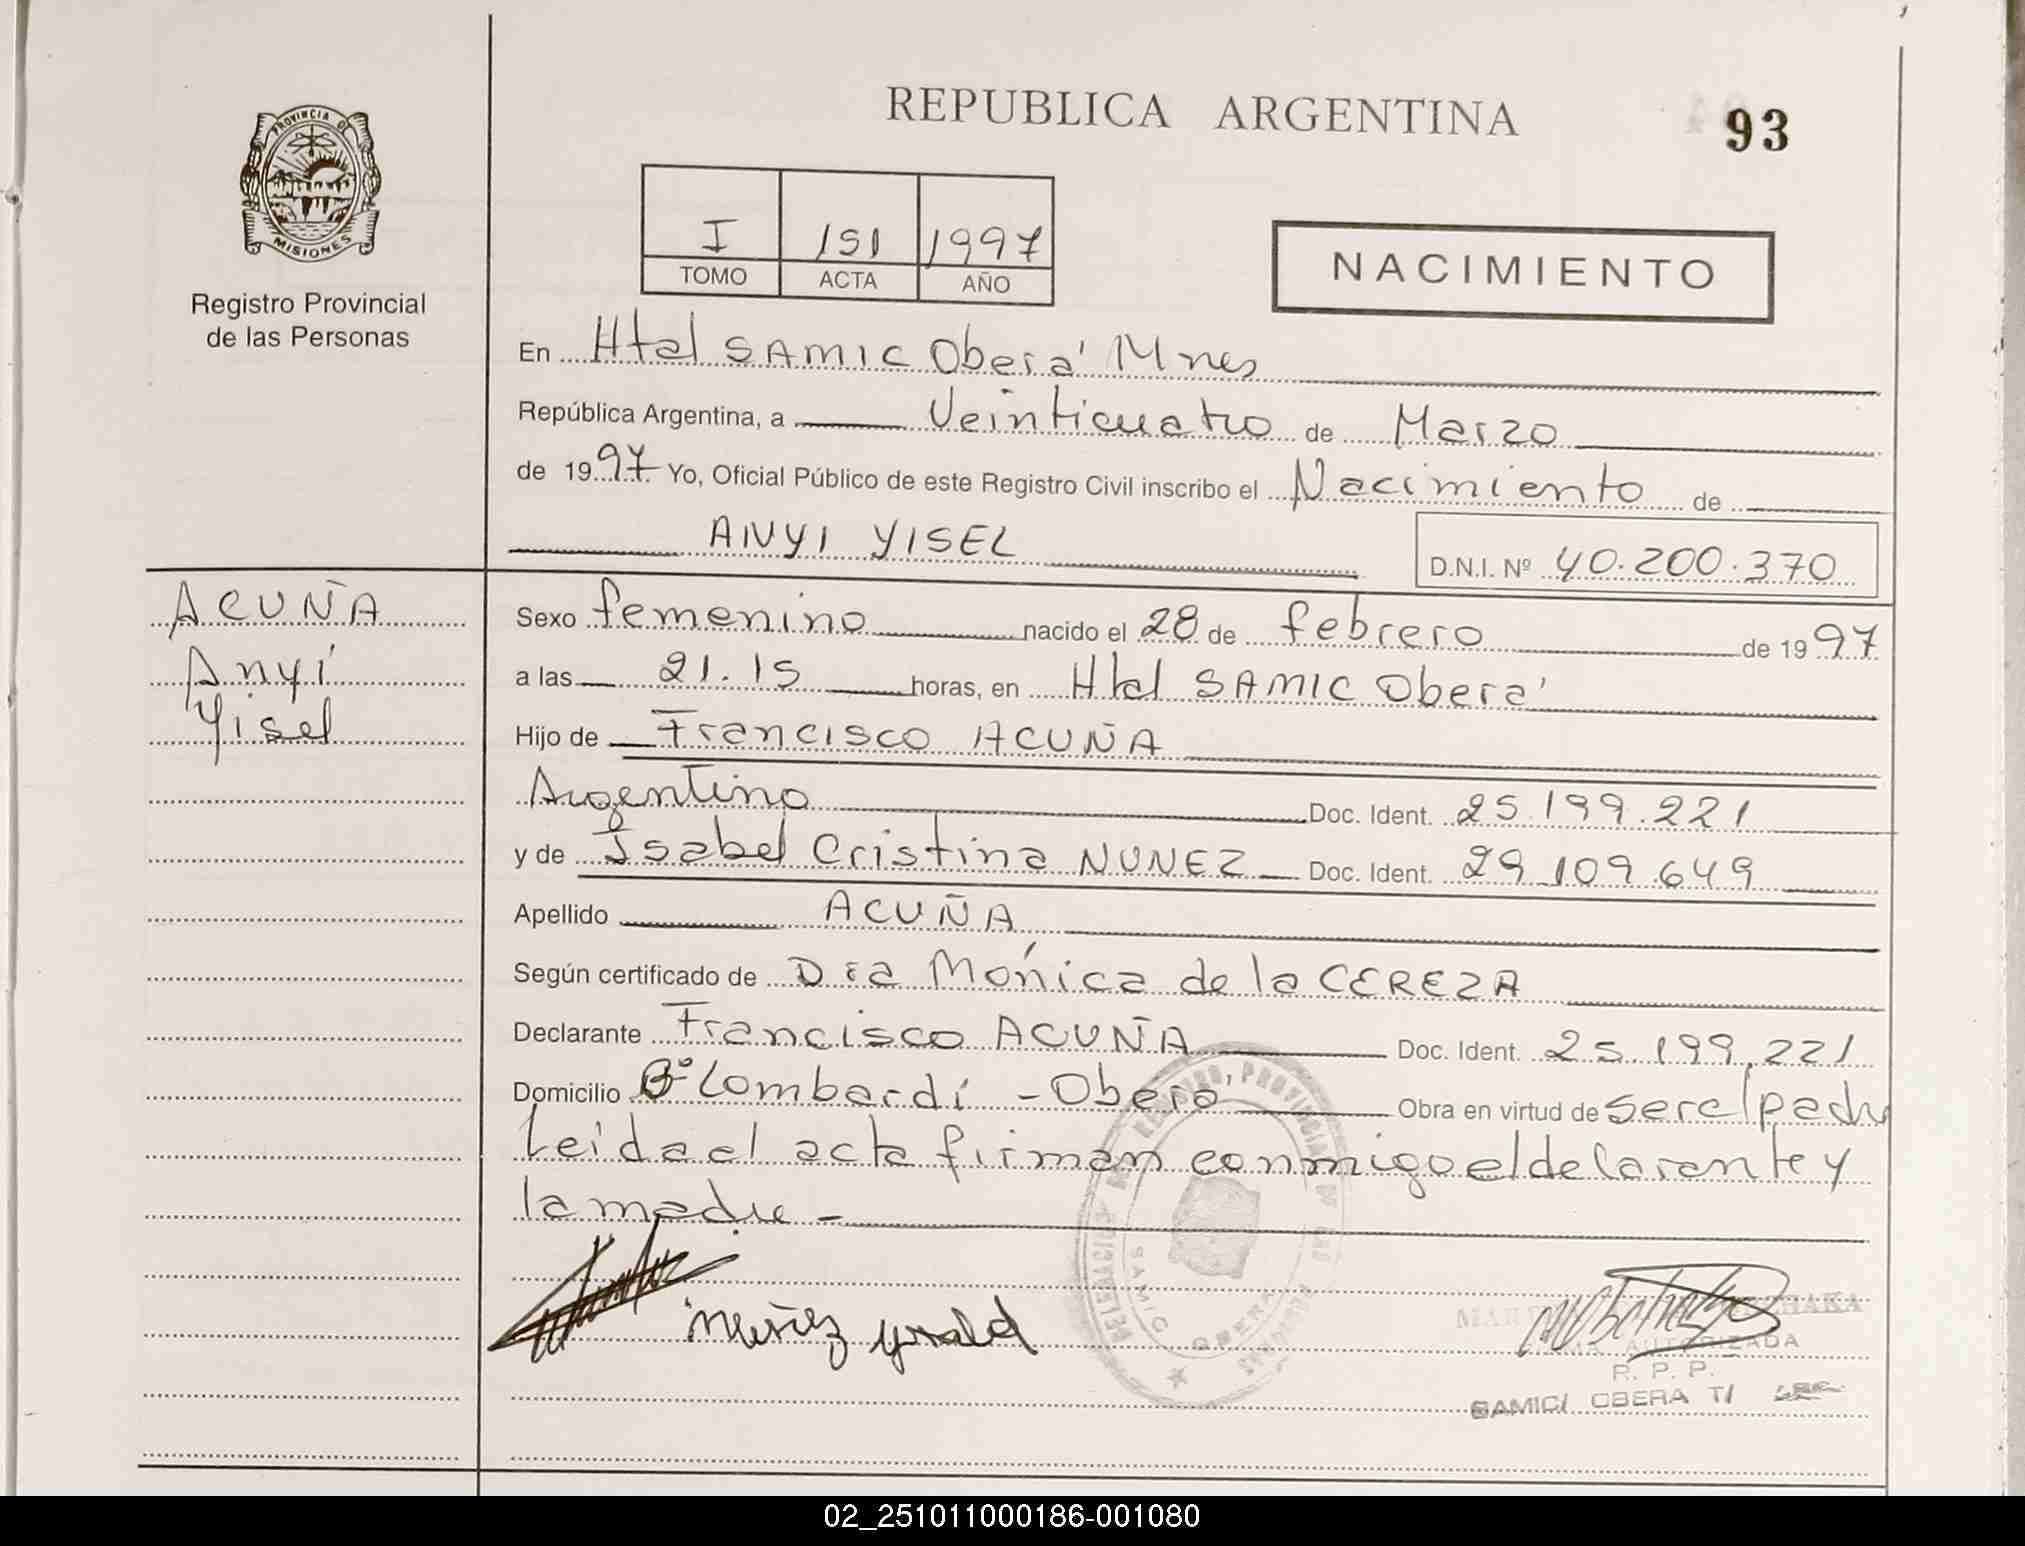 REPUBLICA ARGENTINA
93
PROVINCIA DE
MISIONES
Registro Provincial
de las Personas
I 151 1997
TOMO ACTA AÑO
NACIMIENTO
En Htal SAMIC Oberá Mnes
República Argentina, a Veinticuatro de Marzo
de 1997 Yo, Oficial Público de este Registro Civil inscribo el Nacimiento de
ANYI YISEL
D.N.I. Nº 40.200.370
ACUÑA
Anyi
Yisel
Sexo femenino nacido el 28 de febrero de 1997
a las 21.15 horas, en Htal SAMIC Oberá
Hijo de Francisco ACUÑA
Argentino Doc. Ident. 25.199.221
y de Isabel Cristina NUNEZ Doc. Ident. 29.109.649
Apellido ACUÑA
Según certificado de Dra Mónica de la CEREZA
Declarante Francisco ACUÑA Doc. Ident. 25.199.221
Domicilio Bº Lombardi - Oberá Obra en virtud de ser el padre
Leida el acta firman conmigo el delarante y
la madre -
Nuñez
SAMIC OBERA
AUTORIZADA
R. P. P.
SAMIC/ OBERA T/
02_251011000186-001080